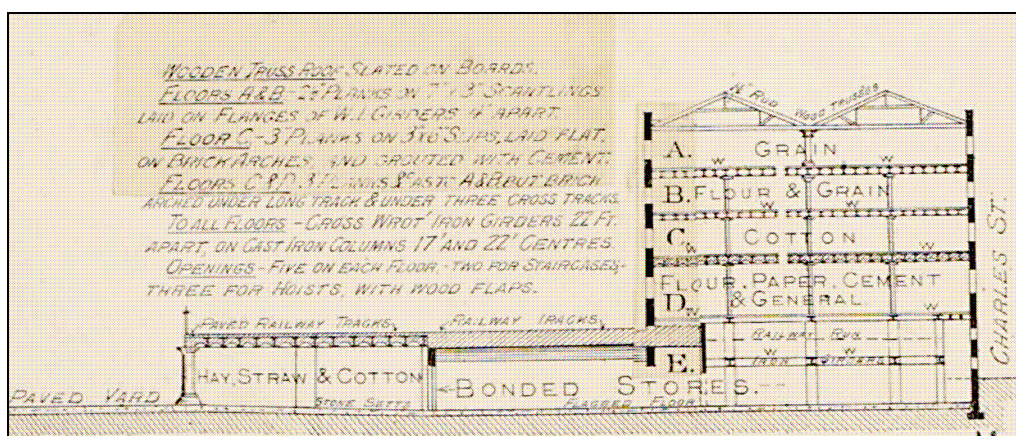 WOODEN TRUSS ROOF SLATED ON BOARDS.
FLOORS A&B - 2½" PLANKS ON 7" x 3" SCANTLINGS
LAID ON FLANGES OF W.I. GIRDERS 4' APART.
FLOOR C - 3" PLANKS ON SLIPS, LAID FLAT,
ON BRICK ARCHES, AND GROUTED WITH CEMENT.
FLOORS C & D. 3" PLANKS &c AS TO A&B. BUT BRICK
ARCHED UNDER LONG TRACK & UNDER THREE CROSS TRACKS
TO ALL FLOORS - CROSS WROT' IRON GIRDERS 22 FT.
APART, ON CAST IRON COLUMNS 17' AND 22' CENTRES
OPENINGS - FIVE ON EACH FLOOR, - TWO FOR STAIRCASES,
THREE FOR HOISTS, WITH WOOD FLAPS.
WOOD TRUSSES
A. GRAIN
W W
B. FLOUR & GRAIN
W W
C. COTTON
W
FLOUR, PAPER, CEMENT
D. & GENERAL
W W
CHARLES ST.
PAVED RAILWAY TRACKS
RAILWAY TRACKS
RAILWAY RUN
W W
E. IRON
HAY, STRAW & COTTON
BONDED STORES.
PAVED YARD
STONE SETTS
FLAGGED FLOOR